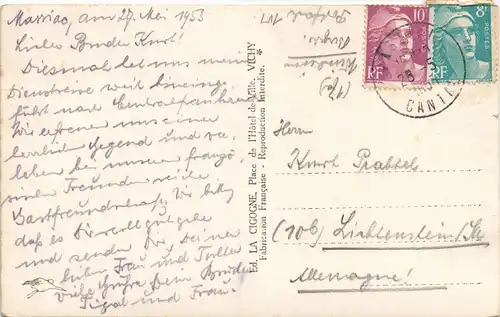 Massiac, am 27. Mei 1953
Lieber Bruder Kurt!
Diesmal hat uns meine
Dienstreise weit hinein ge-
führt nach Centralfrankreich.
Wir erfreuen uns einer
herrlichen Gegend und er-
leben bei unseren französi-
schen Freunden reiche
Gastfreundschaft. Wir hoffen
daß es Dir recht gut gehe
und senden Dir, Deiner
lieben Frau und Tochter
viele Grüße Dein Bruder
und Frau.
Ed. LA CIGOGNE, Place de l'Hôtel-de-Ville, VICHY
Fabrication Française - Reproduction Interdite.
10F
POSTES
RF
8F
POSTES
RF
CANTAL
Herrn
Kurt Prabtel
(10b) Lichtenstein/Sa
Allemagne!